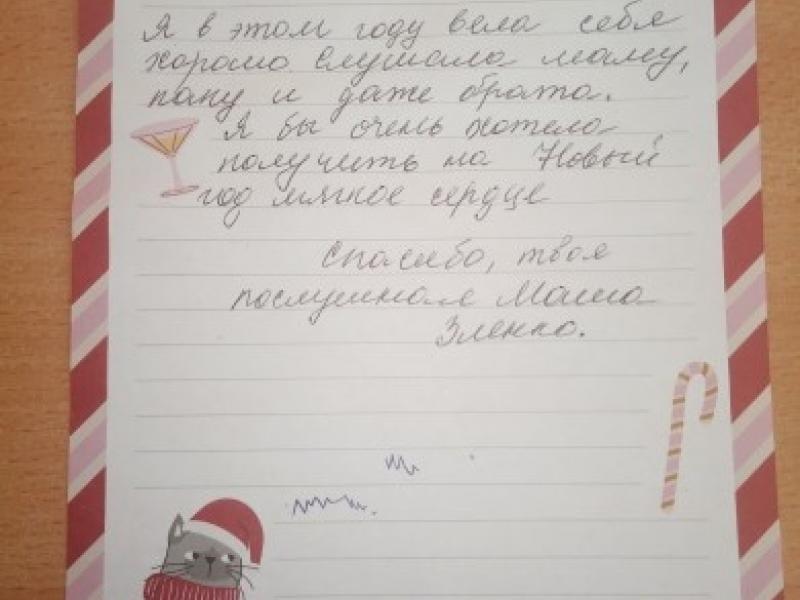 Я в этом году вела себя
хорошо слушала маму,
папу и даже брата.
Я бы очень хотела
получить на Новый
год мягкое сердце
Спасибо, твоя
послушная Маша
Зленко.